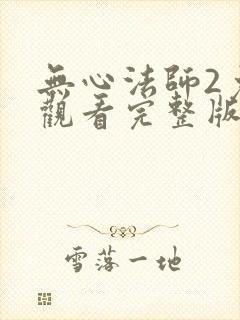 無心法師2
觀看完整版
雪落一地